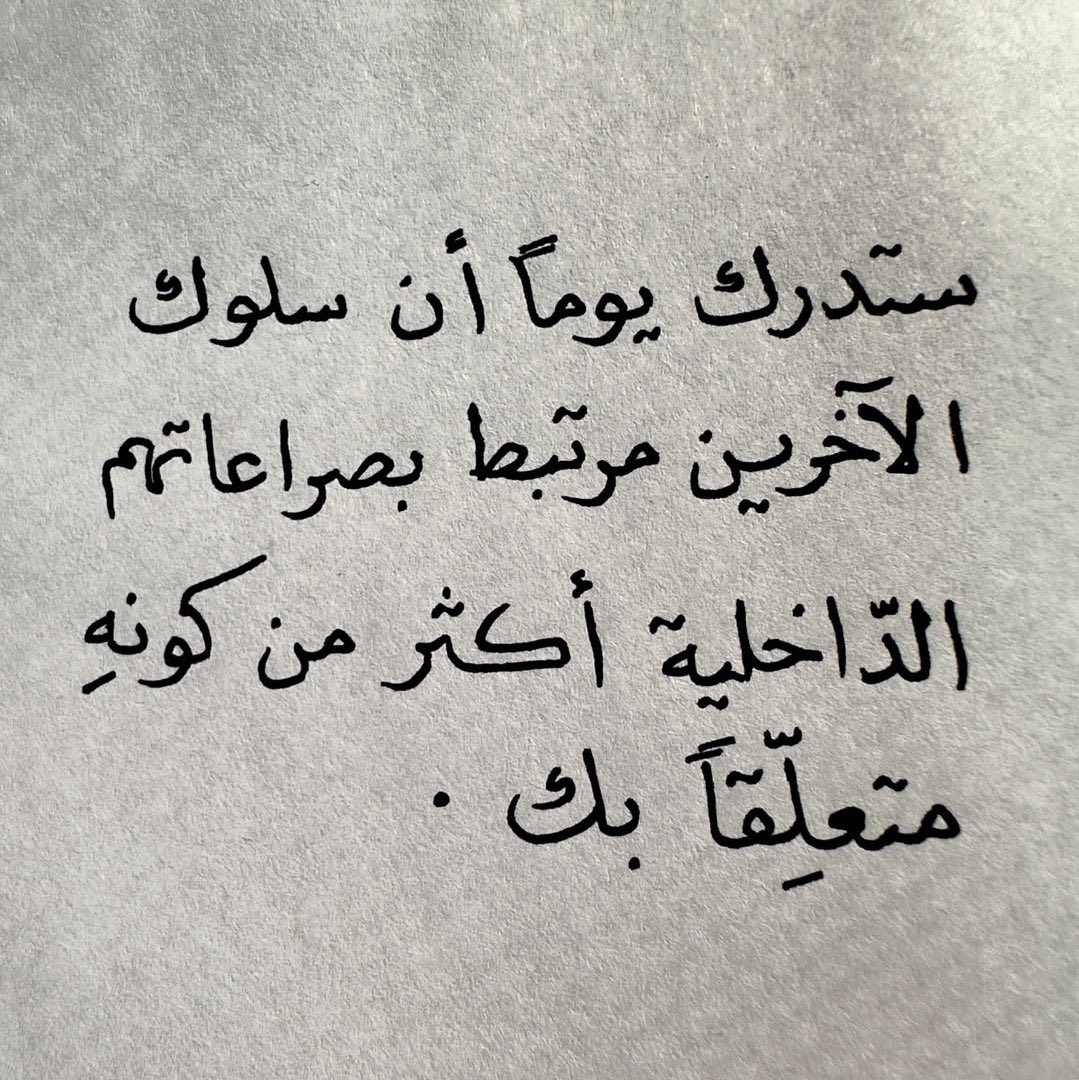 ستدرك يوماً أن سلوك
الآخرين مرتبط بصراعاتهم
الدّاخلية أكثر من كونهِ
متعلِّقاً بك .